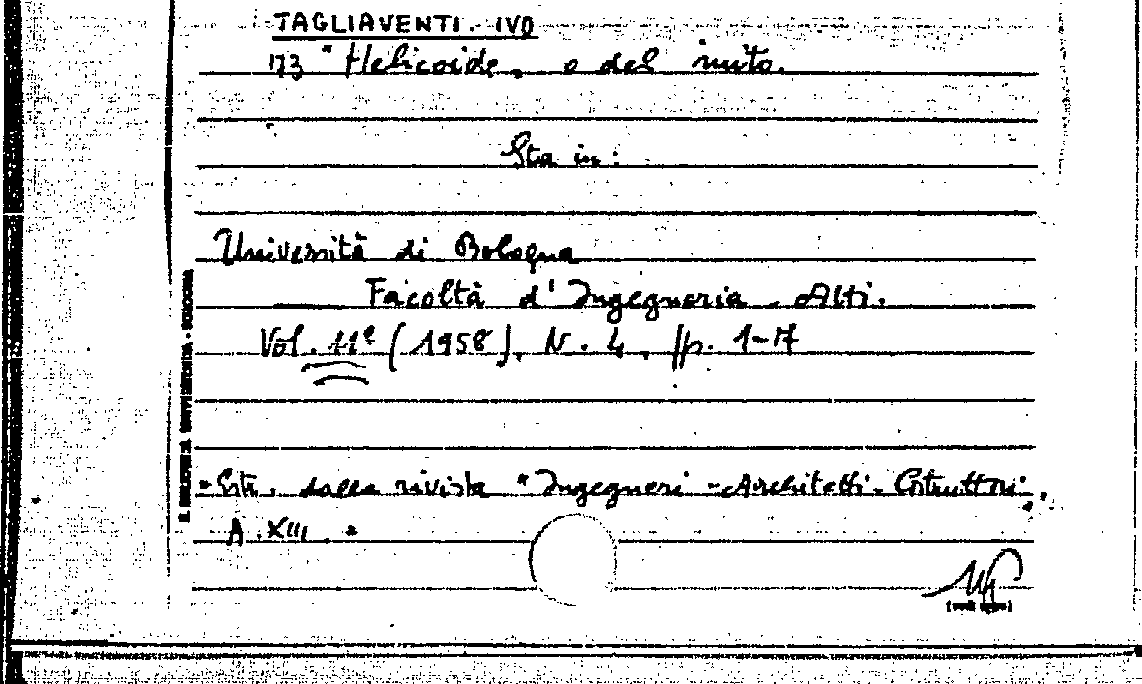 TAGLIAVENTI. IVO
173 "Helicoide, o del mito.
Sta in:
Università di Bologna
Facoltà d'Ingegneria. Atti.
Vol. 11° (1958), N. 4, pp. 1-17
"Estr. dalla rivista "Ingegneri - Architetti - Costruttori",
A. XIII. "